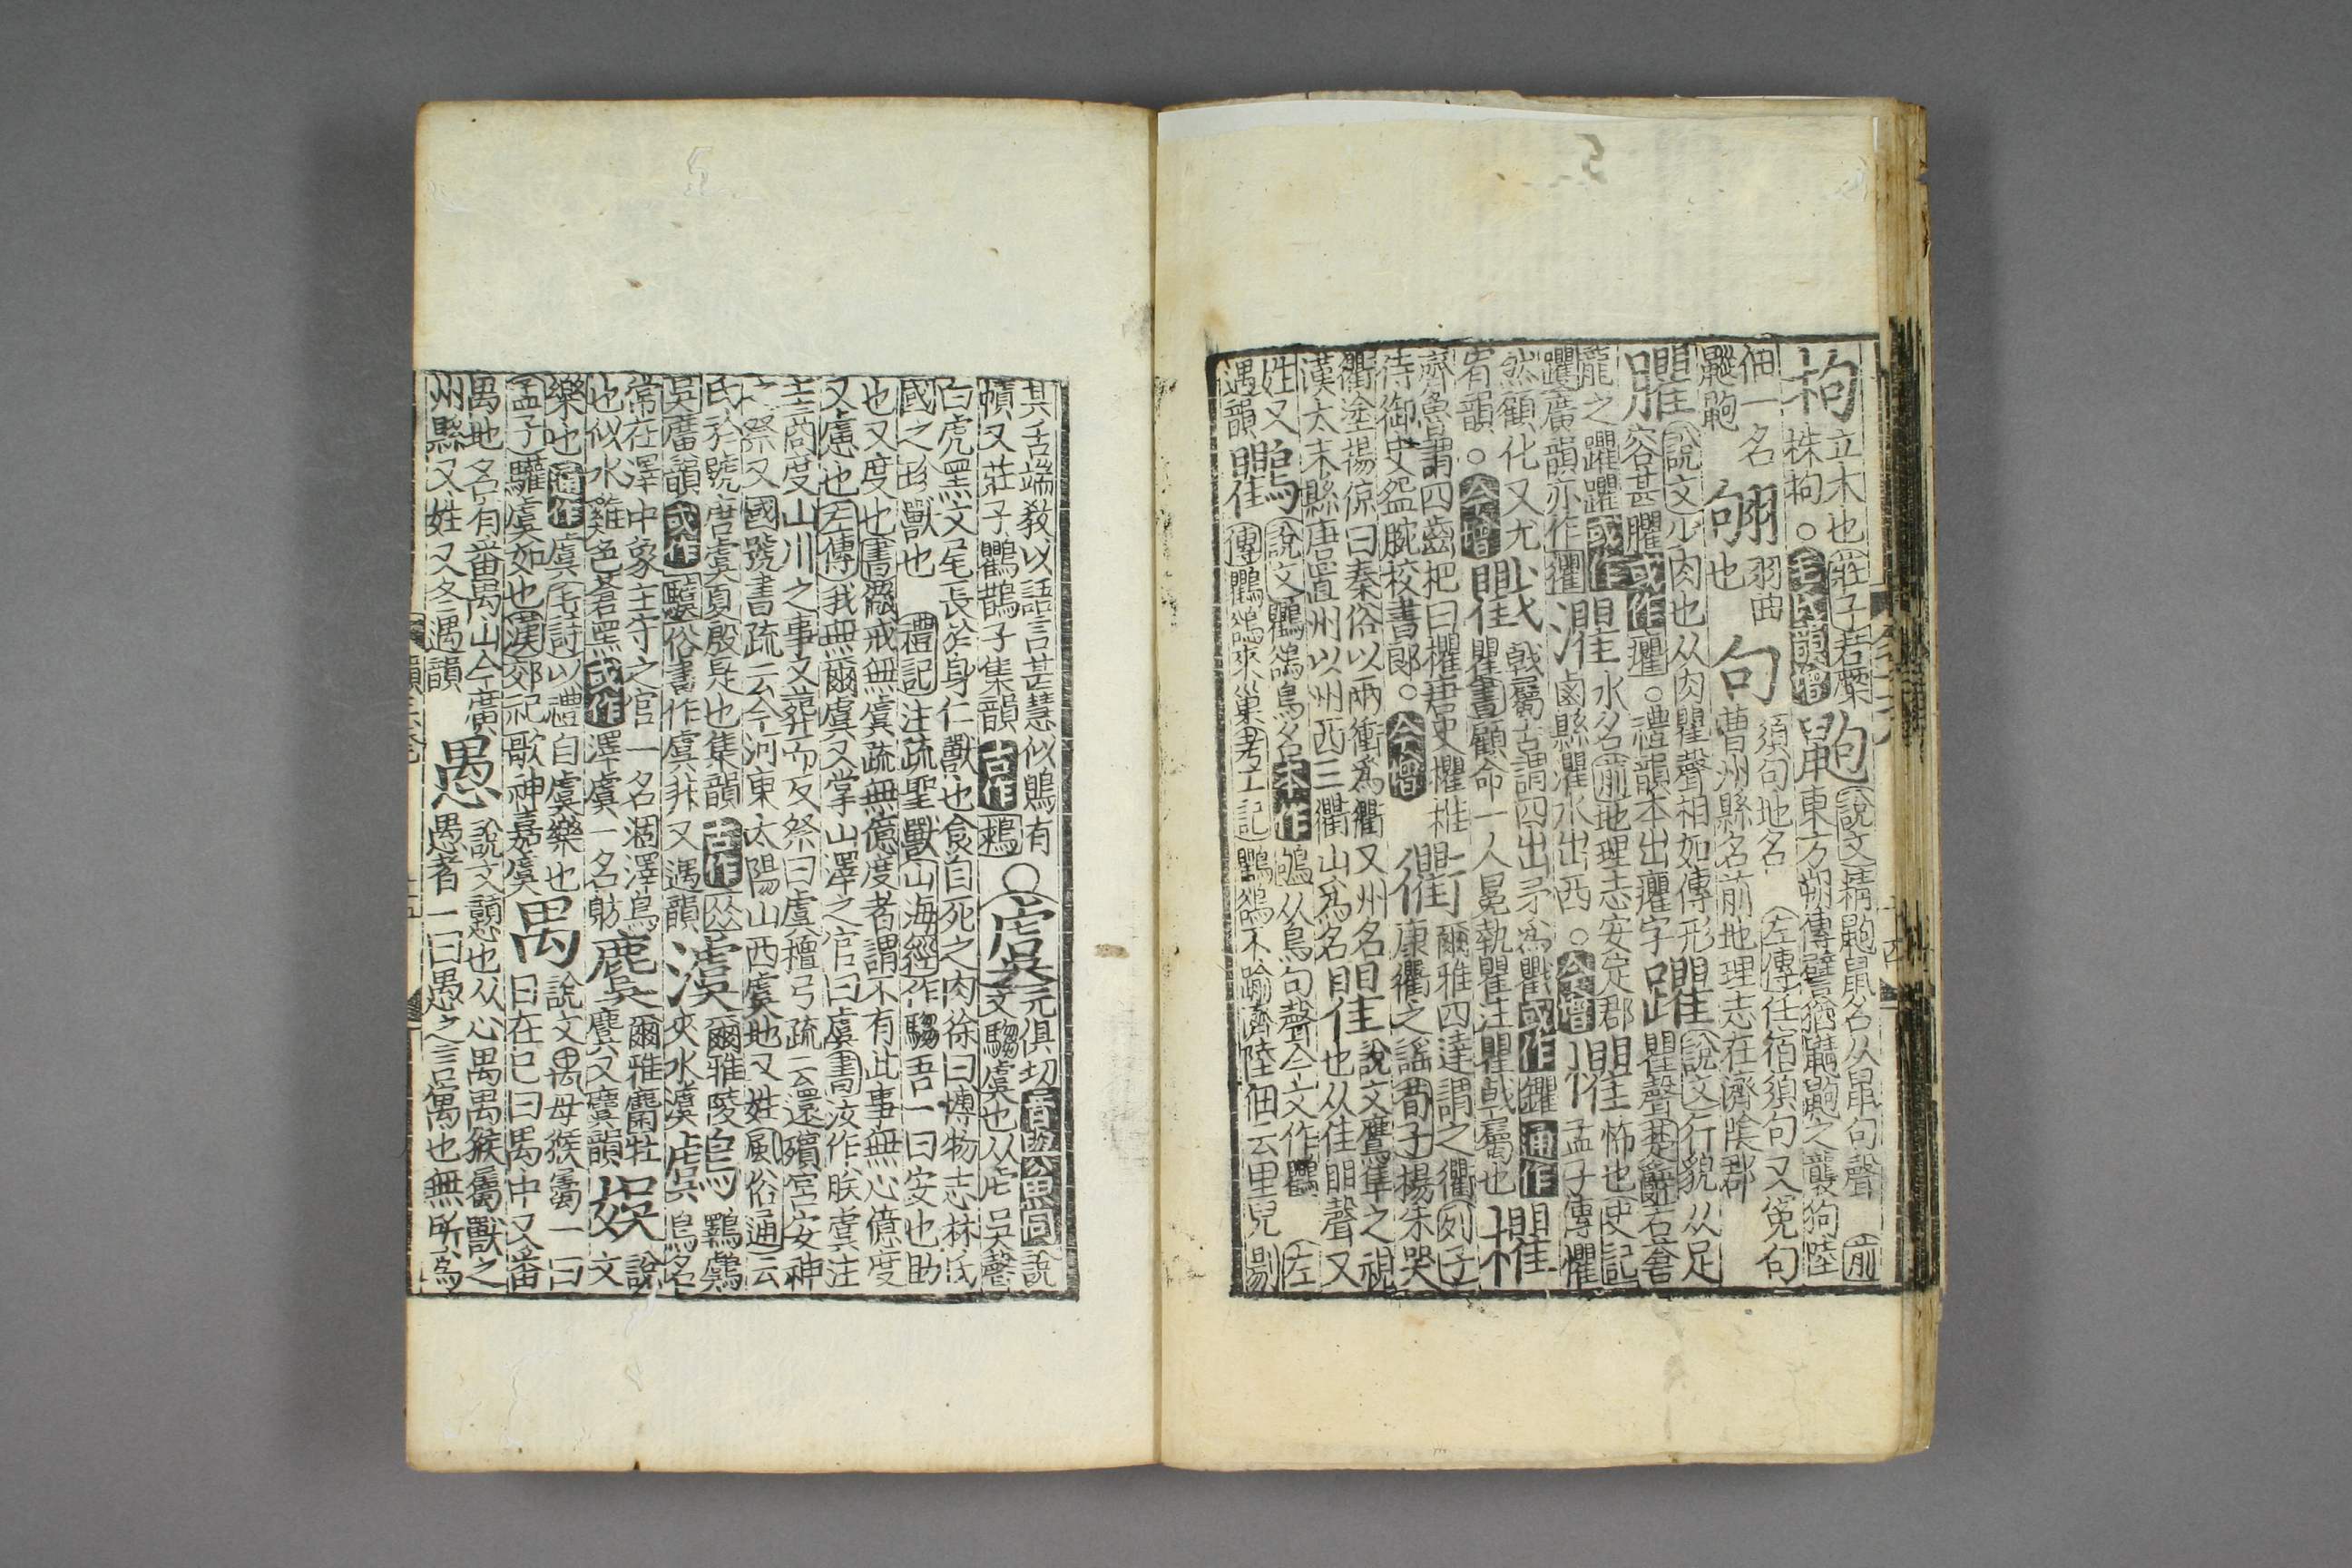 枸立木也莊子若橜
株枸○毛氏韻增鼩說文精鼩鼠名从鼠句聲前
東方朔傳譬猶鼱鼩之襲狗陸
佃一名
鼱鼩翑羽曲
也句須句地名左傳任宿須句又寃句
曹州縣名前地理志在濟陰郡
臞說文少肉也从肉瞿聲相如傳形
容甚臞或作癯○禮韻本出癯字躍說文行貌从足
瞿聲楚辭右蒼
龍之躍躍或作灈水名前地理志安定郡
鹵縣灈水出西○今增懼怖也史記
孟子傳懼
躍廣韻亦作
然顧化又尤
宥韻○今增戵戟屬古謂四出矛爲戵或作鑺通作
瞿書顧命一人冕執瞿注瞿戟屬也欋
齊魯謂四齒杷曰欋唐史欋椎
侍御史盌腕校書郎○今增衢爾雅四達謂之衢列子
康衢之謠荀子楊朱哭
衢塗楊倞曰秦俗以兩衝爲衢又州名
漢太末縣唐置州以州西三衢山爲名瞿說文鷹隼之視
也从隹䀠聲又
姓又
遇韻鸜說文鸜鵒鳥名本作鴝从鳥句聲今文作鸜左
傳鸜鵒來巢考工記鸜鵒不踰濟陸佃云里兒剔
其舌端敎以語言甚慧似鵙有
幘又莊子鸜鵲子集韻古作鶪○虞元俱切音與愚同說
文騶虞也从虍吳聲
白虎黑文尾長於身仁獸也食自死之肉徐曰博物志林氏
國之珍獸也禮記注疏聖獸山海經作騶吾一曰安也助
也又度也書儆戒無虞疏無億度者謂不有此事無心億度
又慮也左傳我無爾虞又掌山澤之官曰虞書汝作朕虞注
主商度山川之事又葬而反祭曰虞檀弓疏云還殯宮安神
之祭又國號書疏云今河東太陽山西虞地又姓風俗通云
氏於號唐虞夏殷是也集韻古作
吳廣韻或作俗書作虞非又遇韻澞爾雅陵
夾水澞鸆鳥名
常在澤中象主守之官一名澤鳥
也似水鷄色蒼黑或作澤虞一名麌爾雅麕牡
麌又麌韻娛說文
樂也通作虞毛詩以禮自虞樂也
孟子驩虞如也漢郊祀歌神嘉虞禺說文禺母猴屬一曰
日在巳曰禺中又番
禺地名有番禺山今廣
州縣又姓又冬遇韻愚說文戇也从心禺禺猴屬獸之
愚者一曰愚之言寓也無所爲